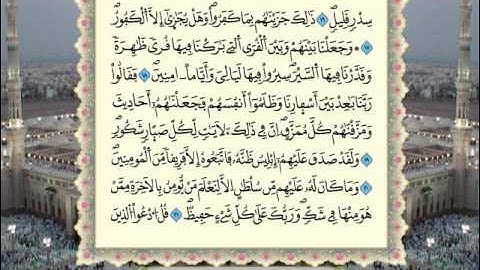 سِدْرٍ قَلِيلٍ ١٦ ذَٰلِكَ جَزَيْنَٰهُم بِمَا كَفَرُواْ وَهَلْ يُجَٰزَىٰٓ إِلَّا اَ۬لْكَفُورُ
١٧ وَجَعَلْنَا بَيْنَهُمْ وَبَيْنَ اَ۬لْقُرَى اَ۬لتِے بَٰرَكْنَا فِيهَا قُريٗ ظَٰهِرَةٗ
وَقَدَّرْنَا فِيهَا اَ۬لسَّيْرَ سِيرُواْ فِيهَا لَيَالِيَ وَأَيَّاماً اٰمِنِينَ ١٨ فَقَالُواْ
رَبَّنَا بَٰعِدْ بَيْنَ أَسْفَارِنَا وَظَلَمُوٓاْ أَنفُسَهُمْ فَجَعَلْنَٰهُمُۥٓ أَحَادِيثَ
وَمَزَّقْنَٰهُمْ كُلَّ مُمَزَّقٍ اِنَّ فِے ذَٰلِكَ ءَلَايَٰتٖ لِّكُلِّ صَبَّارٖ شَكُورٖ
١٩ وَلَقَدْ صَدَقَ عَلَيْهِمُۥٓ إِبْلِيسُ ظَنَّهُۥ فَاتَّبَعُوهُ إِلَّا فَرِيقاٗ مِّنَ اَ۬لْمُومِنِينَ
٢٠ وَمَا كَانَ لَهُۥ عَلَيْهِم مِّن سُلْطَٰنٍ اِلَّا لِنَعْلَمَ مَنْ يُّومِنُ بِالَاخِرَةِ مِمَّنْ
هُوَ مِنْهَا فِے شَكّٖ وَرَبُّكَ عَلَىٰ كُلِّ شَےْءٍ حَفِيظٞ ٢١ قُلُ اُ۟دْعُواْ اُ۬لذِينَ